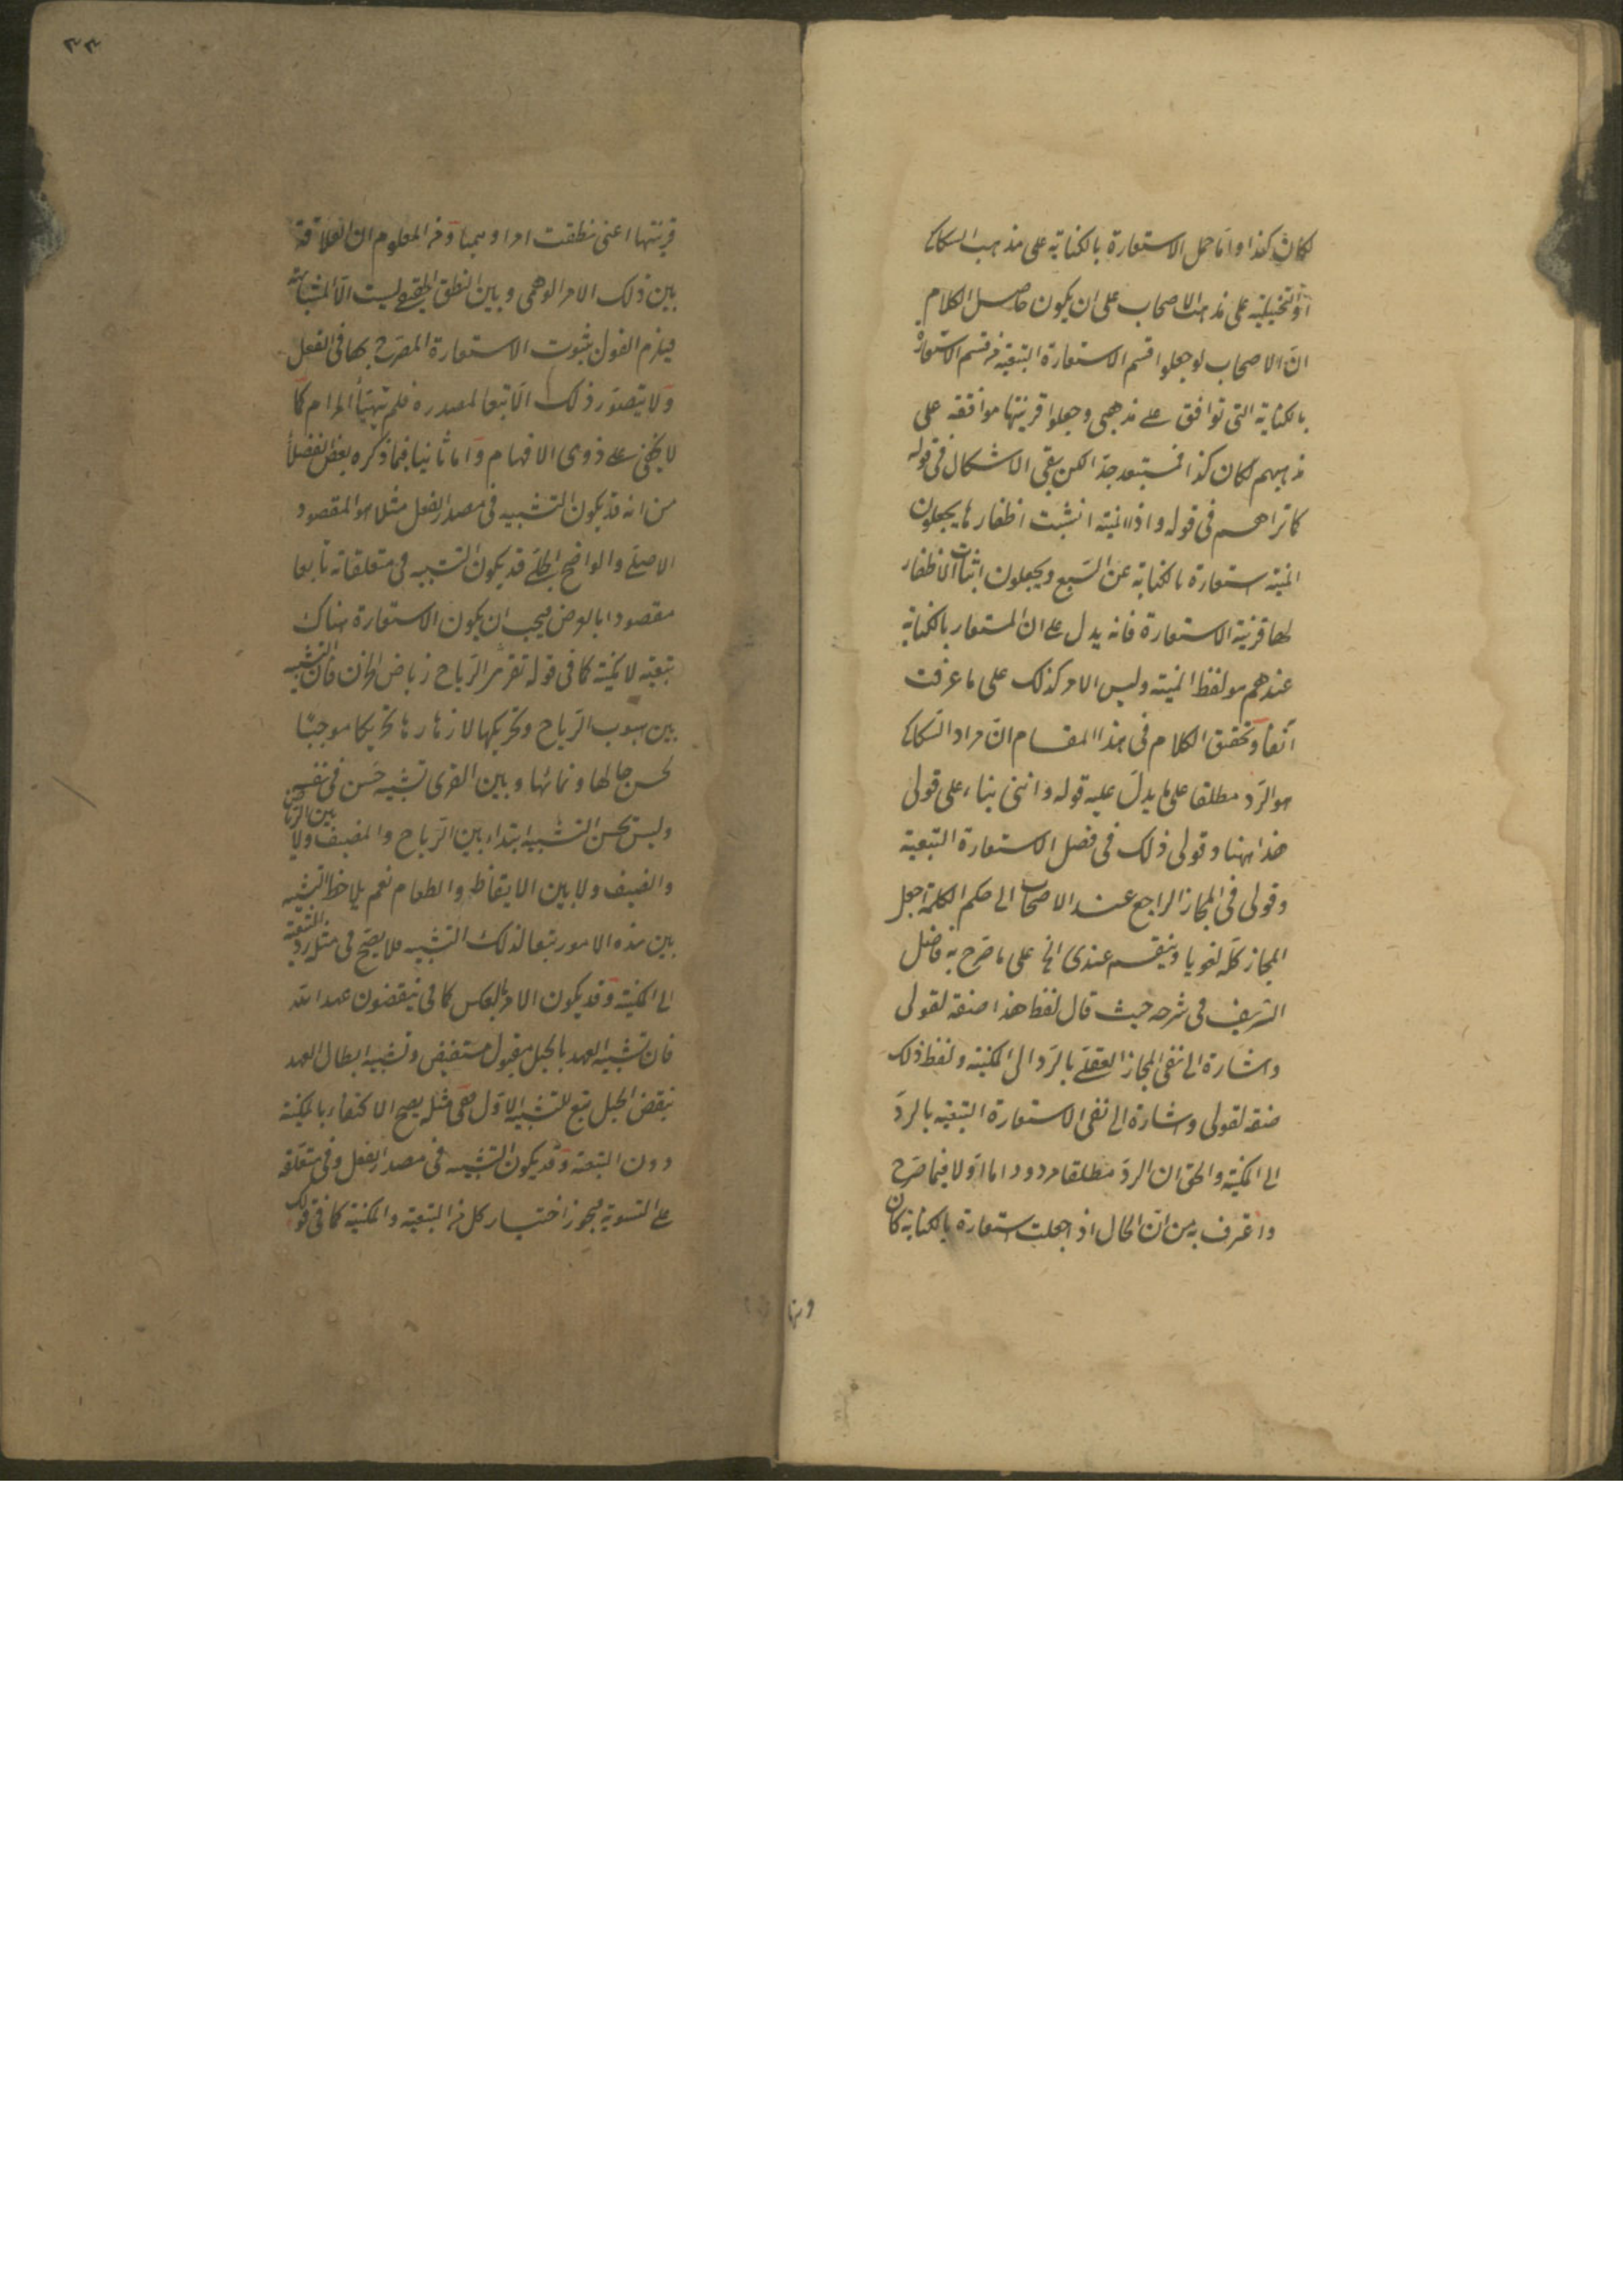 لكان كذا واما حمل الاستعارة بالكناية على مذهب السكاكي
او التخييلية على مذهب الاصحاب على ان يكون حاصل الكلام
ان الاصحاب لو جعلوا قسم الاستعارة التبعية من قسم الاستعارة
بالكناية التى توافق على مذهبى وجعلوا قرينتها موافقة على
مذهبهم لكان كذا فمستبعد جدا لكن بقى الاشكال فى قوله
كما تراهم فى قوله واذا المنية انشبت اظفارها يجعلون
المنية استعارة بالكناية عن السبع ويجعلون اثبات الاظفار
لها قرينة الاستعارة فانه يدل على ان المستعار بالكناية
عندهم هو لفظ المنية وليس الامر كذلك على ما عرفت
آنفا وتحقيق الكلام فى هذا المقام ان مراد السكاكي
هو الرد مطلقا على ما يدل عليه قوله واننى بناء على قولى
هذا ههنا وقولى ذلك فى فصل الاستعارة التبعية
وقولى فى المجاز الراجع عند الاصحاب الى حكم الكلمة اجعل
المجاز كله لغويا وينقسم عندى الخ على ما صرح به فاضل
الشريف فى شرحه حيث قال لفظ هذا صفة لقولى
واشارة الى نفى المجاز العقلى بالرد الى المكنية ولفظ ذلك
صفة لقولى واشارة الى نفى الاستعارة التبعية بالرد
الى المكنية والحق ان الرد مطلقا مردود اما اولا فبما صرح
واعترف به من ان الحال اذا جعلت استعارة بالكناية كان
٣٣
قرينتها اعنى نطقت امرا وهميا ومن المعلوم ان العلاقة
بين ذلك الامر الوهمى وبين النطق الحقيقى ليست الا المشابهة
فيلزم القول بثبوت الاستعارة المصرح بها فى الفعل
ولا يتصور ذلك الا تبعا لمصدره فلم يتهيأ المرام كما
لا يخفى على ذوى الافهام واما ثانيا فبما ذكره بعض الفضلأ
من انه قد يكون التشبيه فى مصدر الفعل مثلا هو المقصود
الاصلى والواضح الجلى قد يكون التشبيه فى متعلقاته تابعا
مقصودا بالعرض فيجب ان يكون الاستعارة هناك
تبعية لا مكنية كما فى قوله تقرى الرياح رياض الحزن فان التشبيه
بين هبوب الرياح وتحريكها لازهارها تحريكا موجبا
لحسن حالها ونمائها وبين القرى تشبيه حسن فى نفسه
وليس يحسن التشبيه ابتداء بين الرياح والمضيف ولا بين الرياض
والضيف ولا بين الايقاظ والطعام نعم يلاحظ التشبيه
بين هذه الامور تبعا لذلك التشبيه فلا يصح فى مثله رد التبعية
الى المكنية وقد يكون الامر بالعكس كما فى ينقضون عهد الله
فان تشبيه العهد بالحبل مقبول مستفيض وتشبيه ابطال العهد
بنقض الحبل تبع للتشبيه الاول ففى مثله يصح الاكتفاء بالمكنية
دون التبعية وقد يكون التشبيه فى مصدر الفعل وفى متعلقه
على التسوية فيجوز اختيار كل من التبعية والمكنية كما فى قولك